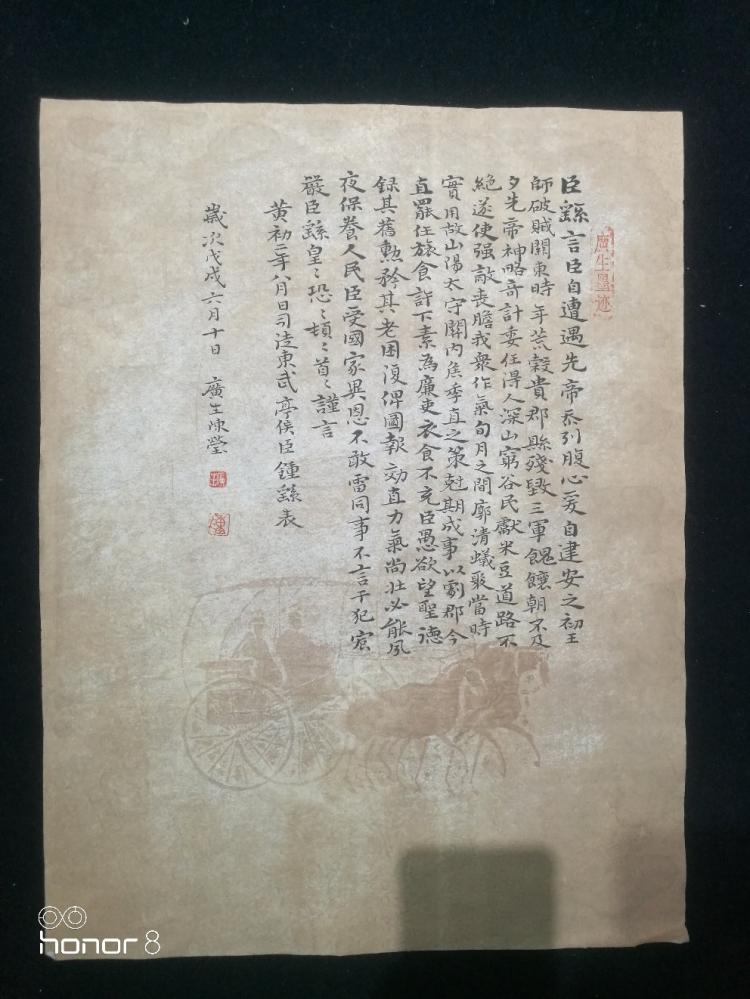 廣生墨迹
臣繇言臣自遭遇先帝忝列腹心爰自建安之初王
師破賊關東時年荒穀貴郡縣殘毀三軍餽饟朝不及
夕先帝神略奇計委任得人深山窮谷民獻米豆道路不
絕遂使强敵喪膽我衆作氣旬月之間廓清蟻聚當時
實用故山陽太守關內焦季直之策尅期成事以劇郡今
直罷任旅食許下素為廉吏衣食不充臣愚欲望聖德
録其舊勳矜其老困復俾圖報効直力氣尚壯必能夙
夜保養人民臣受國家異恩不敢雷同事不言干犯宸
嚴臣繇皇〻恐〻頓〻首〻謹言
黄初二年八月日司徒東武亭侯臣鍾繇表
歲次戊戌六月十日 廣生陳瑩
honor 8